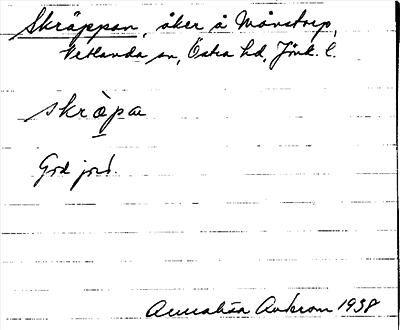 Skräppan, åker å Månstorp,
Vetlanda sn, Östra hd, Jönk. l.
skräpa
God jord.
Annalisa Anderson 1938